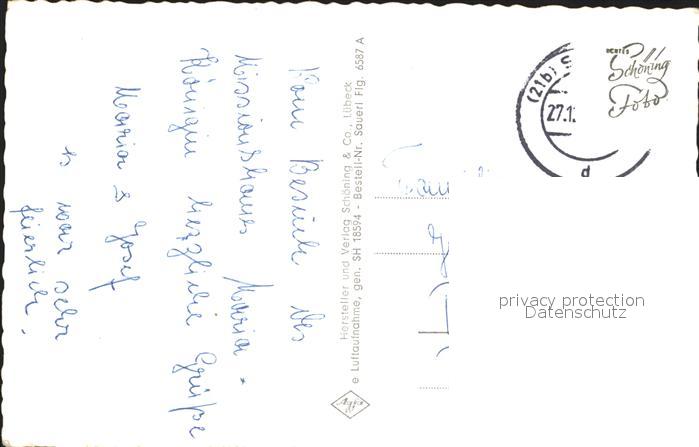 Vom Besuch des
Missionshauses Maria-
Königin herzliche Grüße
Maria & Josef
Es war sehr
feierlich.
Hersteller und Verlag Schöning & Co., Lübeck
e Luftaufnahme, gen. SH 18594 - Bestell-Nr. Sauerl Flg. 6587 A
Agfa
(21b)
27.1
d
ECHTES
Schöning
Foto
privacy protection
Datenschutz